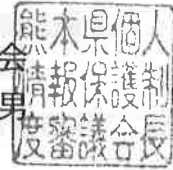 熊本県個人
情報保護制
度審議会長
会
男